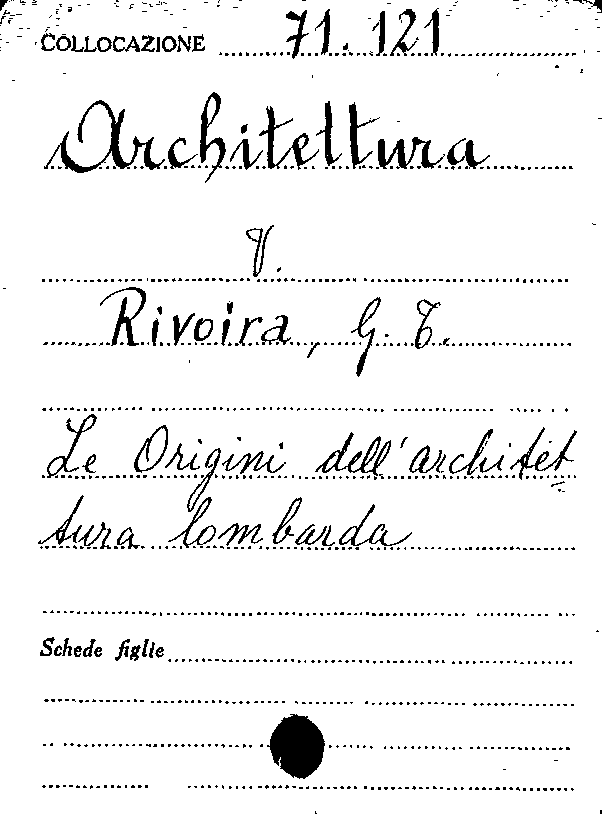 COLLOCAZIONE 71.121
Architettura
V.
Rivoira, G. T.
Le Origini dell'architet
tura lombarda
Schede figlie